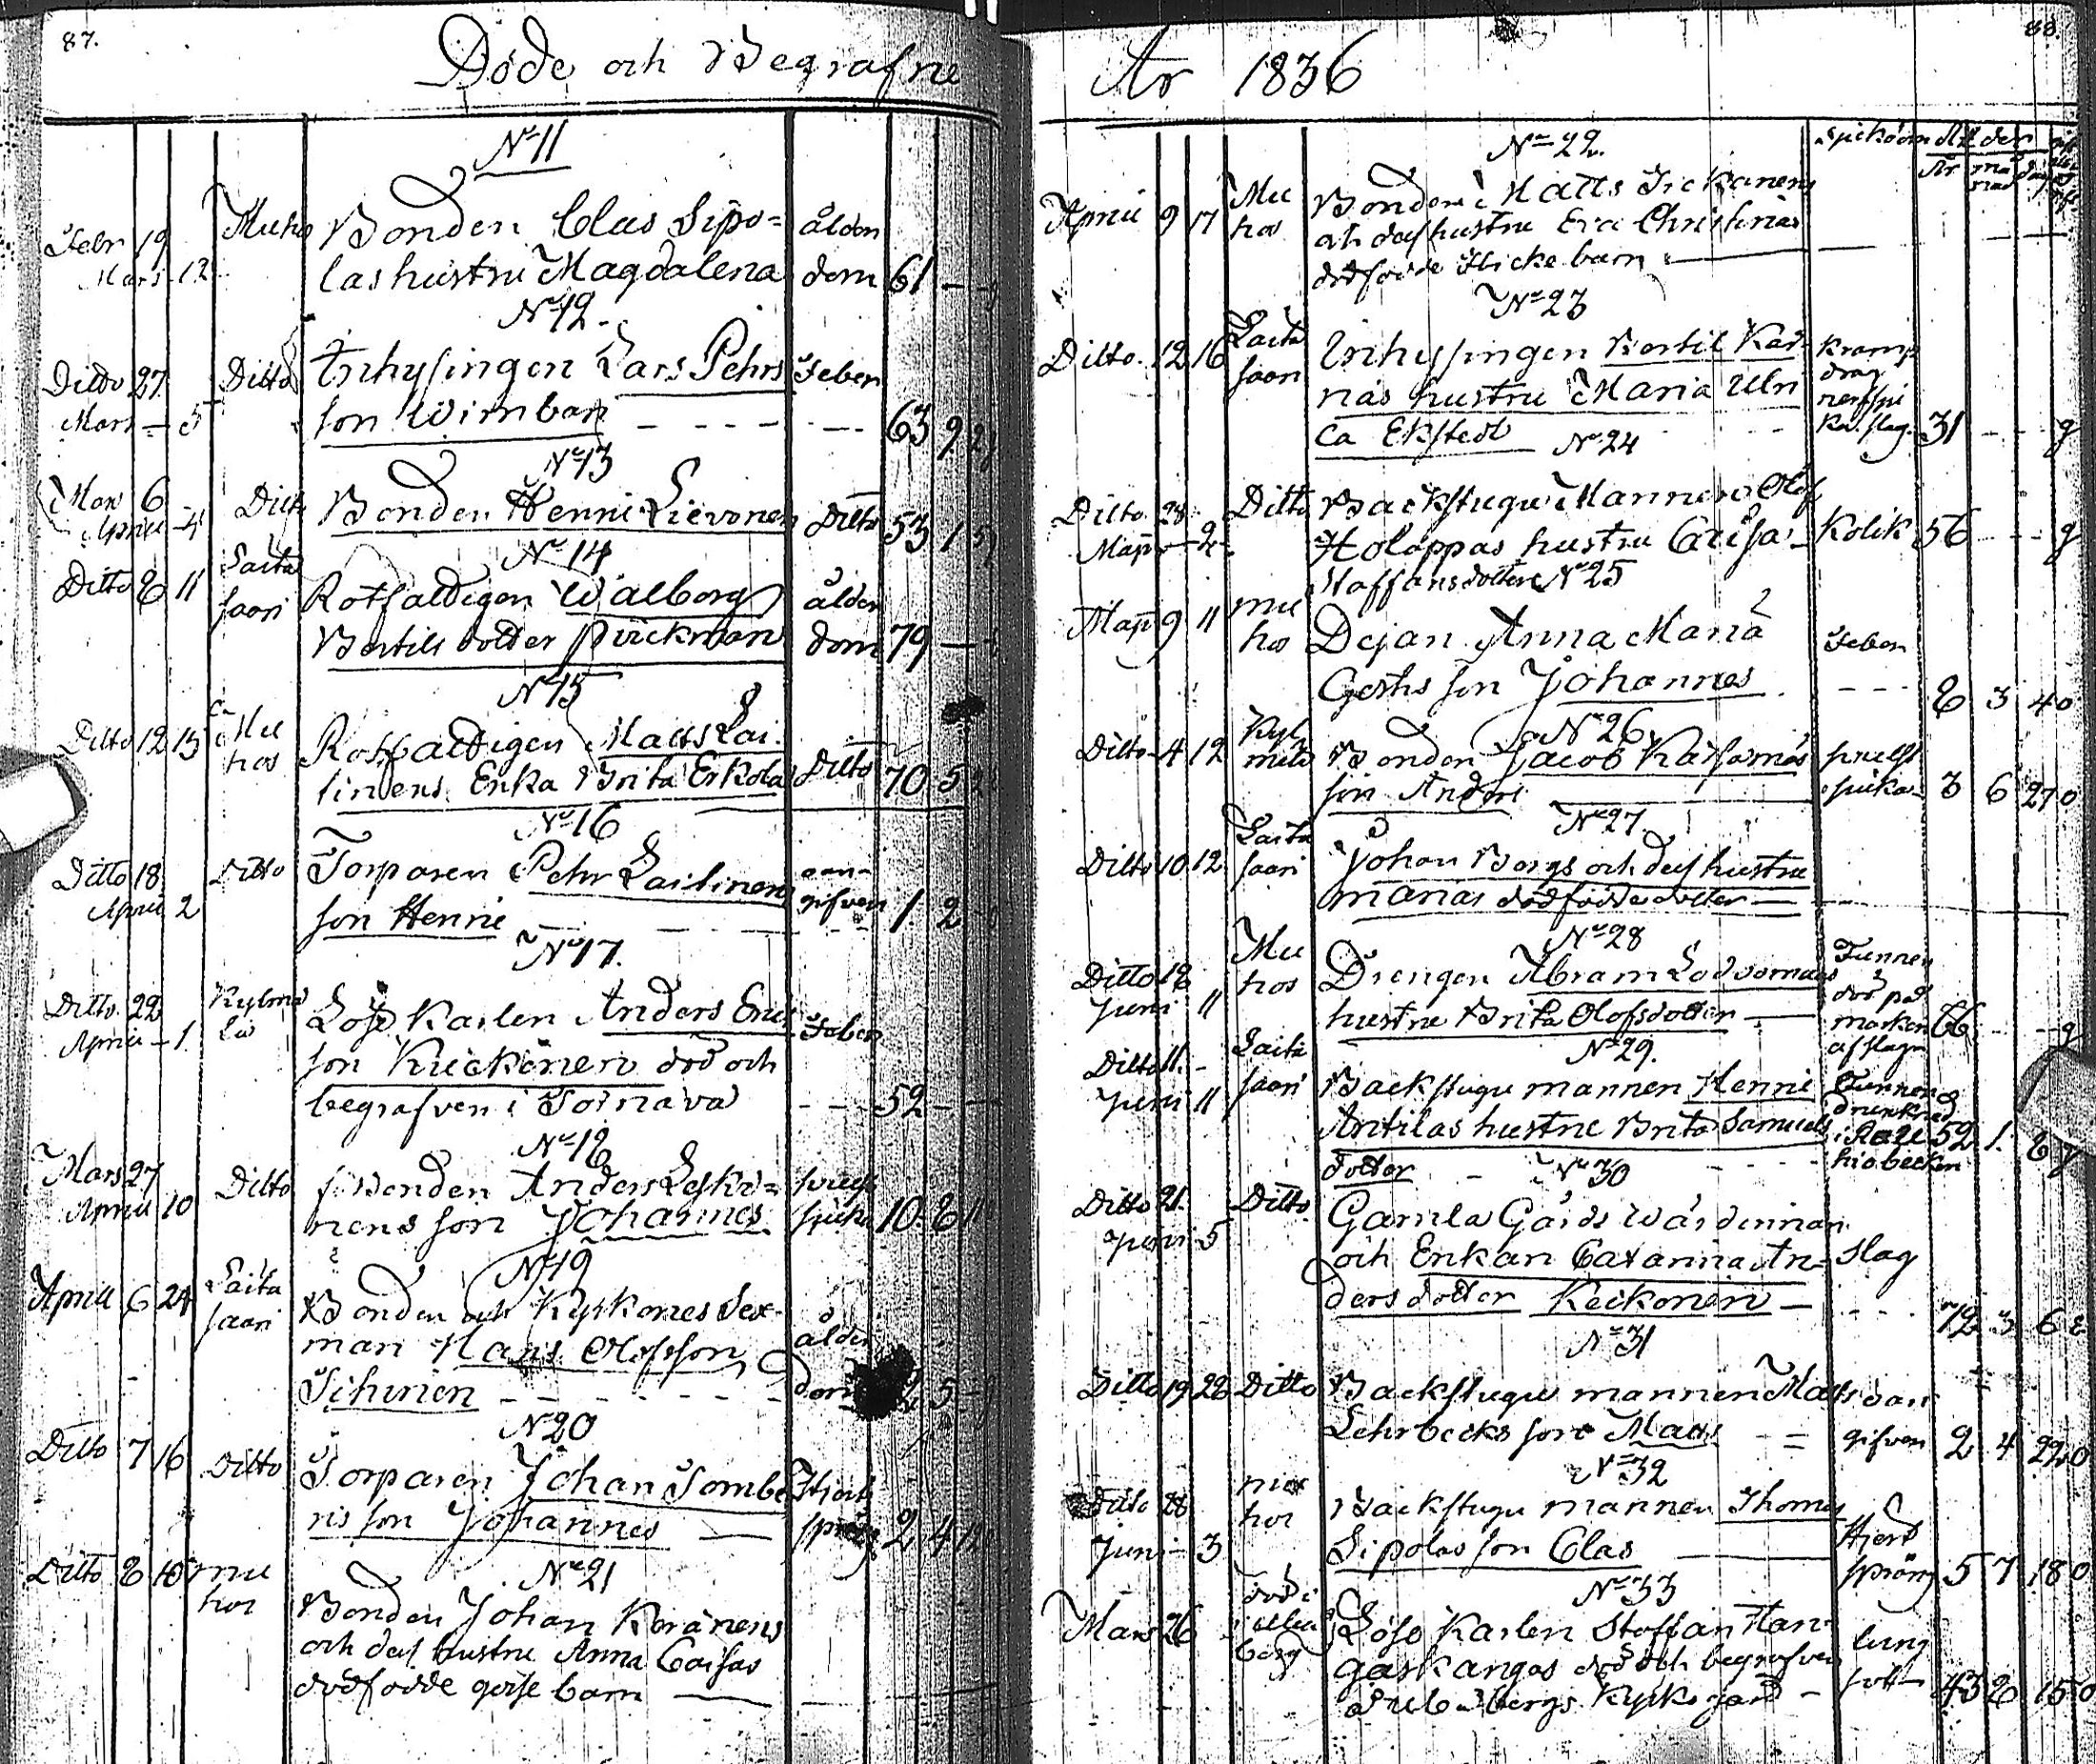 87.
Döde och Begrafne
N 11
Febr 19
Mars 12
Muhos
Bonden Clas Sipo=
las hustru Magdalena
ålder
dom 61
N 12.
Ditto 27
Mars 5
Ditto
Inhysingen Lars Pehrs
son Wirnban
Feber
63 9 2
N 13
Mars 6
Aprill 4
Ditto
Bonden Henric Lievonen
Ditto 53 1 5
N 14
Ditto 8 11
Laita
saari
Rotfaldigen Walborg
Bertils dotter
ålder
dom 79
N 15
Ditto 12 13
Mu
hos
Rotfaldigen Matts Lai
tinens Enka Brita Erkola
Ditto 70 5
N 16
Ditto 18
Aprill 2
Ditto
Torparen Pehr Laitinens
son Henric
oan-
gifven 1 2
N 17.
Ditto 22
Aprill 1
Kylmä
Löse Karlen Anders Eric
son Kieckönen död och
begrafven i
Feber
52
N 18
Mars 27
Aprill 10
Ditto
Bonden Anders Leskd=
nens son Johannes
10 8 11
N 19
Aprill 6 24
Laita
saari
Bonden och Kyrkones Sex-
man Hans Olofsson
Tihinen
ålder
dom 5
N 20
Ditto 7 16
Ditto
Torparen Johan Tombe
ris son Johannes
Hjert
språng 2 4 12
N 21
Ditto 8 10
mu
hos
Bonden Johan Koränens
och des hustru Anna Caisas
dödfödde gosse barn
88.
År 1836
Sjukdom
Ålder
År må
nad dagar
N 22.
Aprill 9 17
Mu
hos
Bonden Matts Tickanens
och des hustru Eva Christinas
dödfödde Flicke barn
N 23
Ditto 12 16
Laita
saari
Inhysingen Bertil Kär
näs hustru Maria Ulri
ca Ekstedt
Kramp
drag
31 g
N 24
Ditto 28
Maji 2
Ditto
Backstugu Mannens Olof
Holappas hustru Caisa
Staffansdotter
Kolik 56 g
N 25
Maji 9 11
Mu
hos
Pejan Anna Maria
Gerths son Johannes
Feber
8 3 4 0
N 26
Ditto 4 12
Kyl
mälä
Bonden Jacob Kaisamäs
son Anders
3 6 27 0
N 27
Ditto 10 12
Laita
saari
Johan Borgs och des hustru
Marias dödfödde dotter
N 28
Ditto 18
Juni 11
Mu
hos
Drengen Abram Lodvomäes
hustru Brita Olofsdotter
Funnen
död på
marken
af slagn
66 g
N 29.
Ditto 11
Juni 11
Laita
saari
Backstugu mannen Henric
Antilas hustru Brita Samuels
dotter
Funnen
drunknad
52 1 8 g
N 30
Ditto 21.
Juni 5
Ditto
Gamla Gårds Wärdinnan
och Enkan Catarina An=
ders dotter Keikonen
Slag
72 3 6 e
N 31
Ditto 19 28
Ditto
Backstugu mannen Matts
Lehrbecks son Matts
oan
gifven 2 4 22 0
N 32
Ditto 28
Juni 3
Mu
hos
Backstugu mannen Thomas
Sipolas son Clas
Hjert
språng 5 7 18 0
N 33
Mars 26
död i
borg
Löse Karlen Staffan Han
gaskangas död och begrafven
bergs Kyrko gård
lung
sott 43 2 15 0